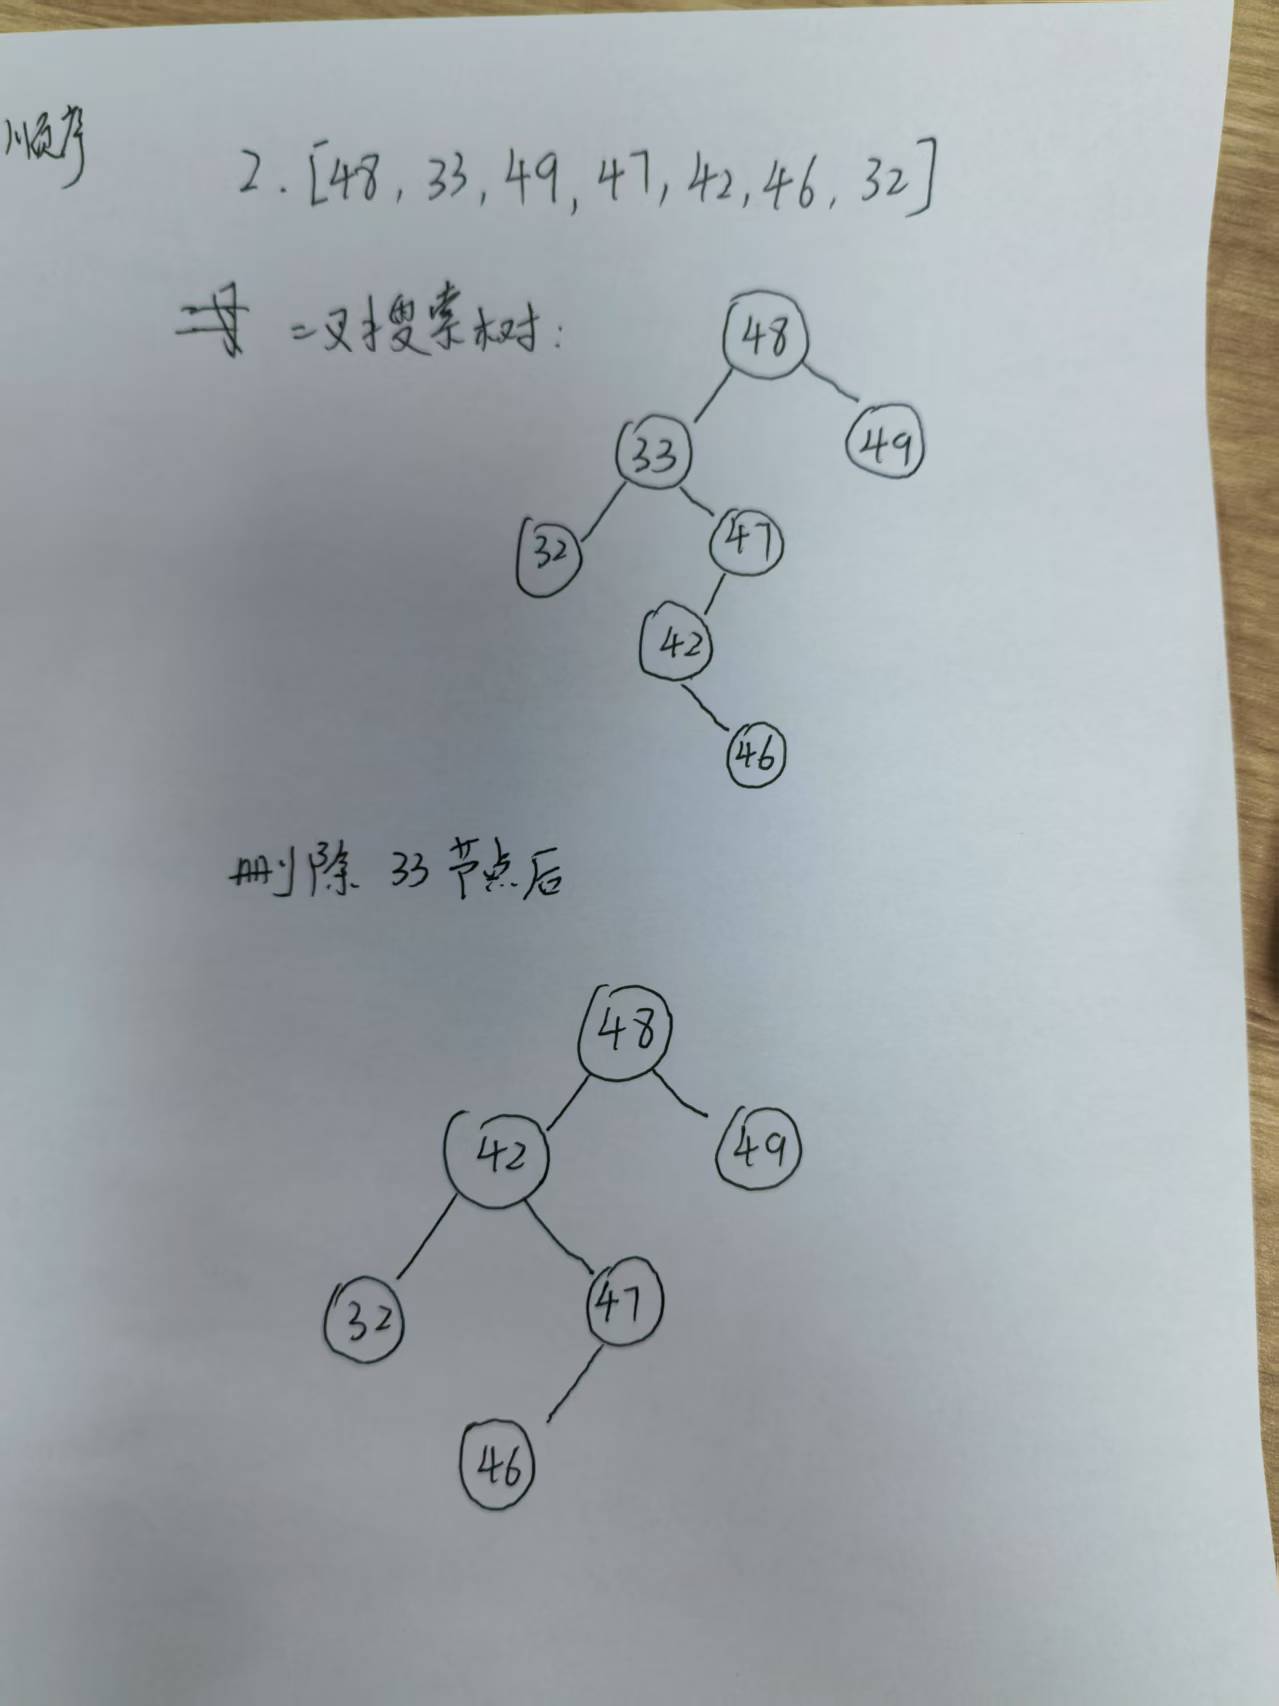 顺序
2. [48, 33, 49, 47, 42, 46, 32]
二叉搜索树:
48
33
49
32
47
42
46
删除 33 节点后
48
42
49
32
47
46